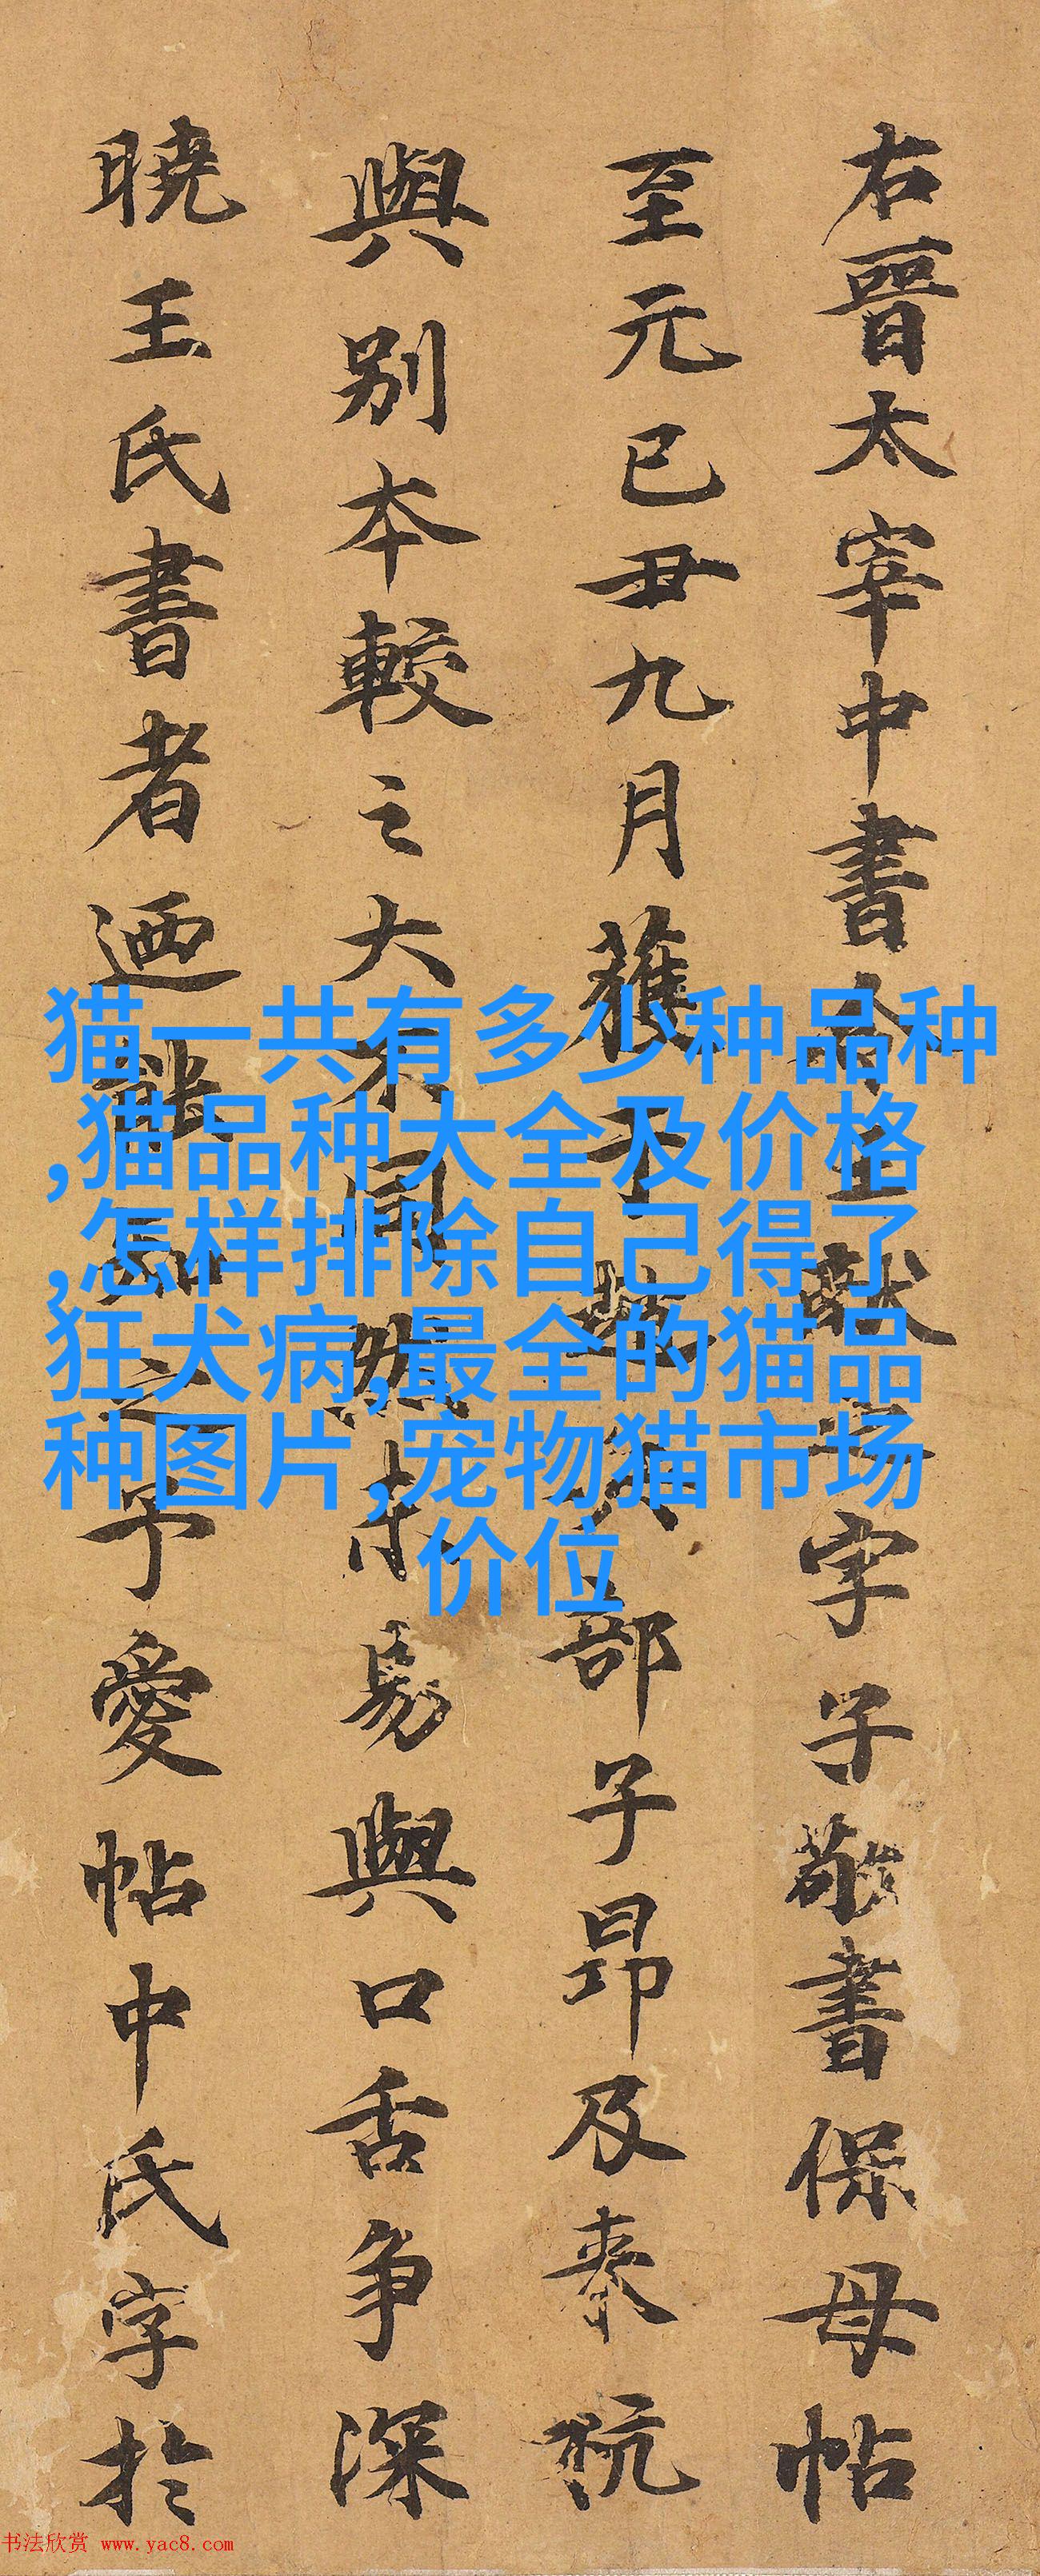 右晉太宰中書令王獻之字子敬書保母帖
至元已丑九月獲于趙兵部子昂及来杭
與别本較之大不同然未易與口舌争深
曉王氏書者迺能知之予愛帖中氏字於
猫一共有多少种品种
,猫品种大全及价格
,怎样排除自己得了
狂犬病,最全的猫品
种图片,宠物猫市场
价位
书法欣赏 www.yac8.com